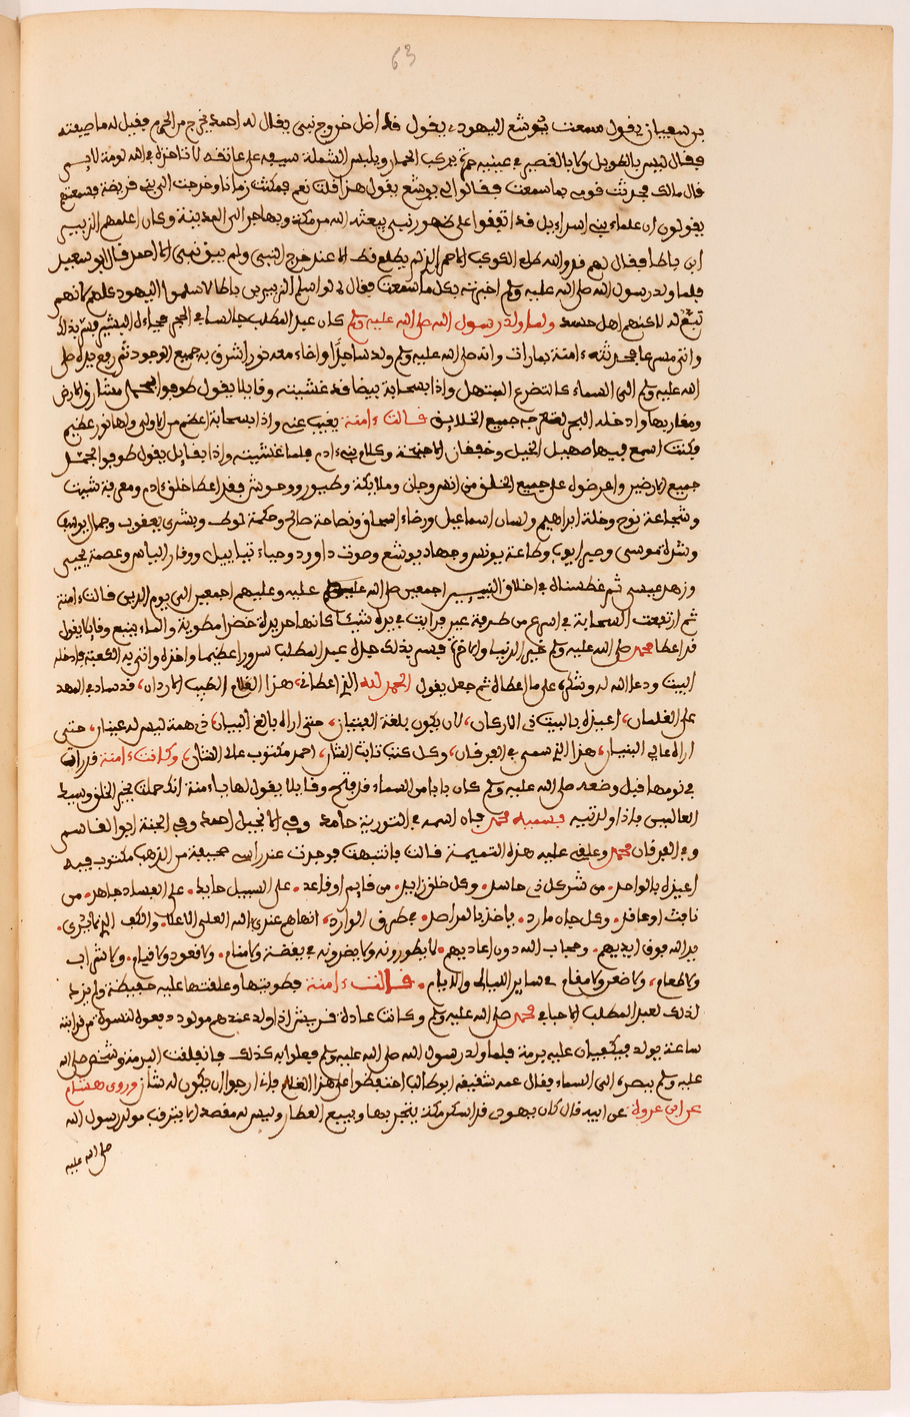 63
بن سفيان يقول سمعت يوشع اليهودي يقول قد اظل خروج نبي يقال له احمد يخرج من الحرم فقيل له ما صفته
فقال ليس بالطويل ولا بالقصير في عينيه حمرة يركب الحمار ويلبس الشملة سيفه على عاتقه لا تاخذه في الله لومة لايم
قال مالك فحدثت قومي بما سمعت فقالوا لي يوشع يقول هذا قلت نعم فمكثت زمانا وخرجت الى بني قريضة فسمعتهم
يقولون ان علماء بني اسراءيل قد اتفقوا على ظهور نبي يبعثه الله من مكة ويهاجر الى المدينة وكان اعلمهم الزبير
ابن باطا فقال لهم قد والله طلع الكوكب الاحمر الذي لم يطلع قط الا عند خروج النبي ولم يبق نبي الا احمد قال ابو سعيد
فلما ولد رسول الله صلى الله عليه وسلم اخبرته بكل ما سمعت فقال لي لو اسلم الزبير بن باطا لاسلموا اليهود كلهم لانهم
تبع له لاكنهم اهل حسد ولما ولد رسول الله صلى الله عليه وسلم كان عبد المطلب جالسا في الحجر فجاءه البشير فبشره بذلك
واتى مسرعا فحدثته ءامنة بما رات وانه صلى الله عليه وسلم ولد ساجدا واضاء معه نور اشرق به جميع الوجود ثم رفع يده صلى
الله عليه وسلم الى السماء كالمتضرع المبتهل واذا بسحابة بيضا قد غشيته وقايلا يقول طوفوا بمحمد مشارق الارض
ومغاربها وادخله البحر لتعرفه جميع الخلايق قالت ءامنة يغيب عني واذا بسحابة اعظم من الاولى ولها نور عظيم
فكنت اسمع فيها صهيل الخيل وخفقان الاجنحة وكلام بني ءادم فلما غشيته واذا بقايل يقول طوفوا بمحمد
جميع الارضين واعرضوه على جميع الخلق من انس وجان وملايكة وطيور ووحوش فقد اعطا خلق ءادم ومعرفة شيث
وشجاعة نوح وخلة ابراهيم ولسان اسماعيل ورضاء اسحاق وفصاحة صالح وحكمة لوط وبشرى يعقوب وجمال يوسف
وشدة موسى وصبر ايوب وطاعة يونس وجهاد يوشع وصوت داوود وحياء دانيايل ووقار الياس وعصمة يحيى
وزهد عيسى ثم غطسناه في اخلاق النبيين اجمعين صلى الله عليه وعليهم اجمعين الى يوم الدين قالت ءامنة
ثم ارتفعت السحابة في اسرع من طرفة عين فرايت في يده شيئا كانها حريرة خضرا مطوية والماء ينبع وقايلا يقول
قد اعطا محمد صلى الله عليه وسلم خير الدنيا والاخرة فسر بذلك جده عبد المطلب سرورا عظيما واخذه واتى به الكعبة وادخله
البيت ودعا الله له وشكره على ما اعطاه ثم جعل يقول الحمد لله الذي اعطاني هذا الغلام الطيب الاردان قد ساد في المهد
على الغلمان اعيذه بالبيت ذي الاركان لان يكون بلغة الفتيان حتى اراه بالغ البيان ذي همة ليس له عينان حتى
اراه عالي البنيان هذا الذي سمي في الفرقان وكل كتب ثابتة المثان احمد مكتوب على المثان وكانت ءامنة قد رات
في نومها قبل وضعه صلى الله عليه وسلم كان بابا من السماء قد فتح وقايلا يقول لها يا ءامنة انك حملت بخير الخلق وسيد
العالمين فاذا ولدتيه فسميه محمد فان اسمه في التورية حامد وفي الانجيل احمد وفي الجنة ابو القاسم
وفي الفرقان محمد وعلقي عليه هذه التميمة قالت فانتبهت فوجدت عند راسي صحيفة من الذهب مكتوب فيه
اعيذه بالواحد من شر كل ذي حاسد وكل خلق زايد من قايم او قاعد على السبيل حايد على الفساد جاهد من
نافث او عاقد وكل جان مارد ياخذ بالمراصد في طرق الموارد انهاهم عنه بالله العلي الاعلا والكف الذي لا يرى
يد الله فوق ايديهم وحجاب الله دون اعاديهم لا يطوونه ولا يضرونه في يقضة ولا منام ولا قعود ولا قيام ولا شراب
ولا طعام ولا ضعن ولا مقام في ساير الليالي والايام قالت ءامنة فطويتها وعلقتها عليه حفيظة ولم يزد
لذلك لعبد المطلب الا حبا في محمد صلى الله عليه وسلم وكانت عادة قريش اذا ولد عندهم مولود دفعوه لنسوة من قرابته
ساعة يولد فيكفيان عليه برمة فلما ولد رسول الله صلى الله عليه وسلم فعلوا به كذلك فانفلقت البرمة وشخص صلى الله
عليه وسلم ببصره الى السماء فقال عمه شقيقه ابو طالب احتفضوا على هذا الغلام فاني ارجوا ان يكون له شان وروى هشام
عن ابن عروة عن ابيه قال كان يهودي قد اسكن مكة يتجر بها ويبيع العطار وليس له مقصد الا يترقب مولد رسول الله
صلى الله عليه